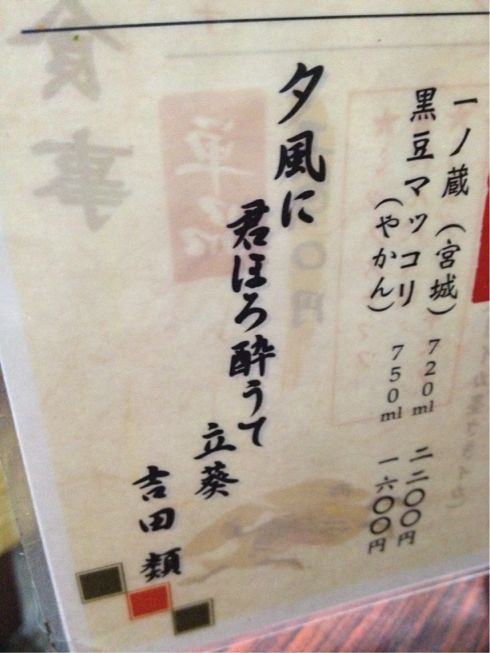 一ノ蔵（宮城） 720ml 二二〇〇円
黒豆マッコリ（やかん） 750ml 一六〇〇円
夕風に
君ほろ酔うて
立葵
吉田類
食事
単品